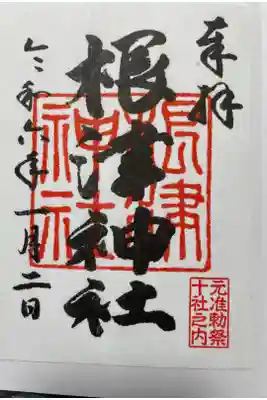 奉拝
根津神社
根津神社
令和六年一月二日
元准勅祭
十社之内